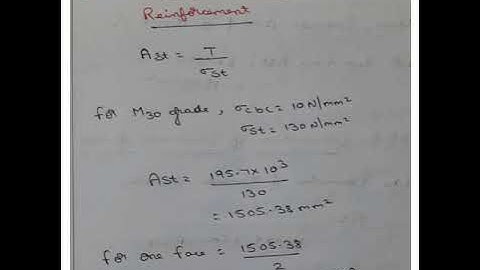 Reinforcement
Ast = T / σst
for M30 grade, σcbc = 10 N/mm²
σst = 130 N/mm²
Ast = 195.7 × 10³ / 130
= 1505.38 mm²
for one face = 1505.38 / 2